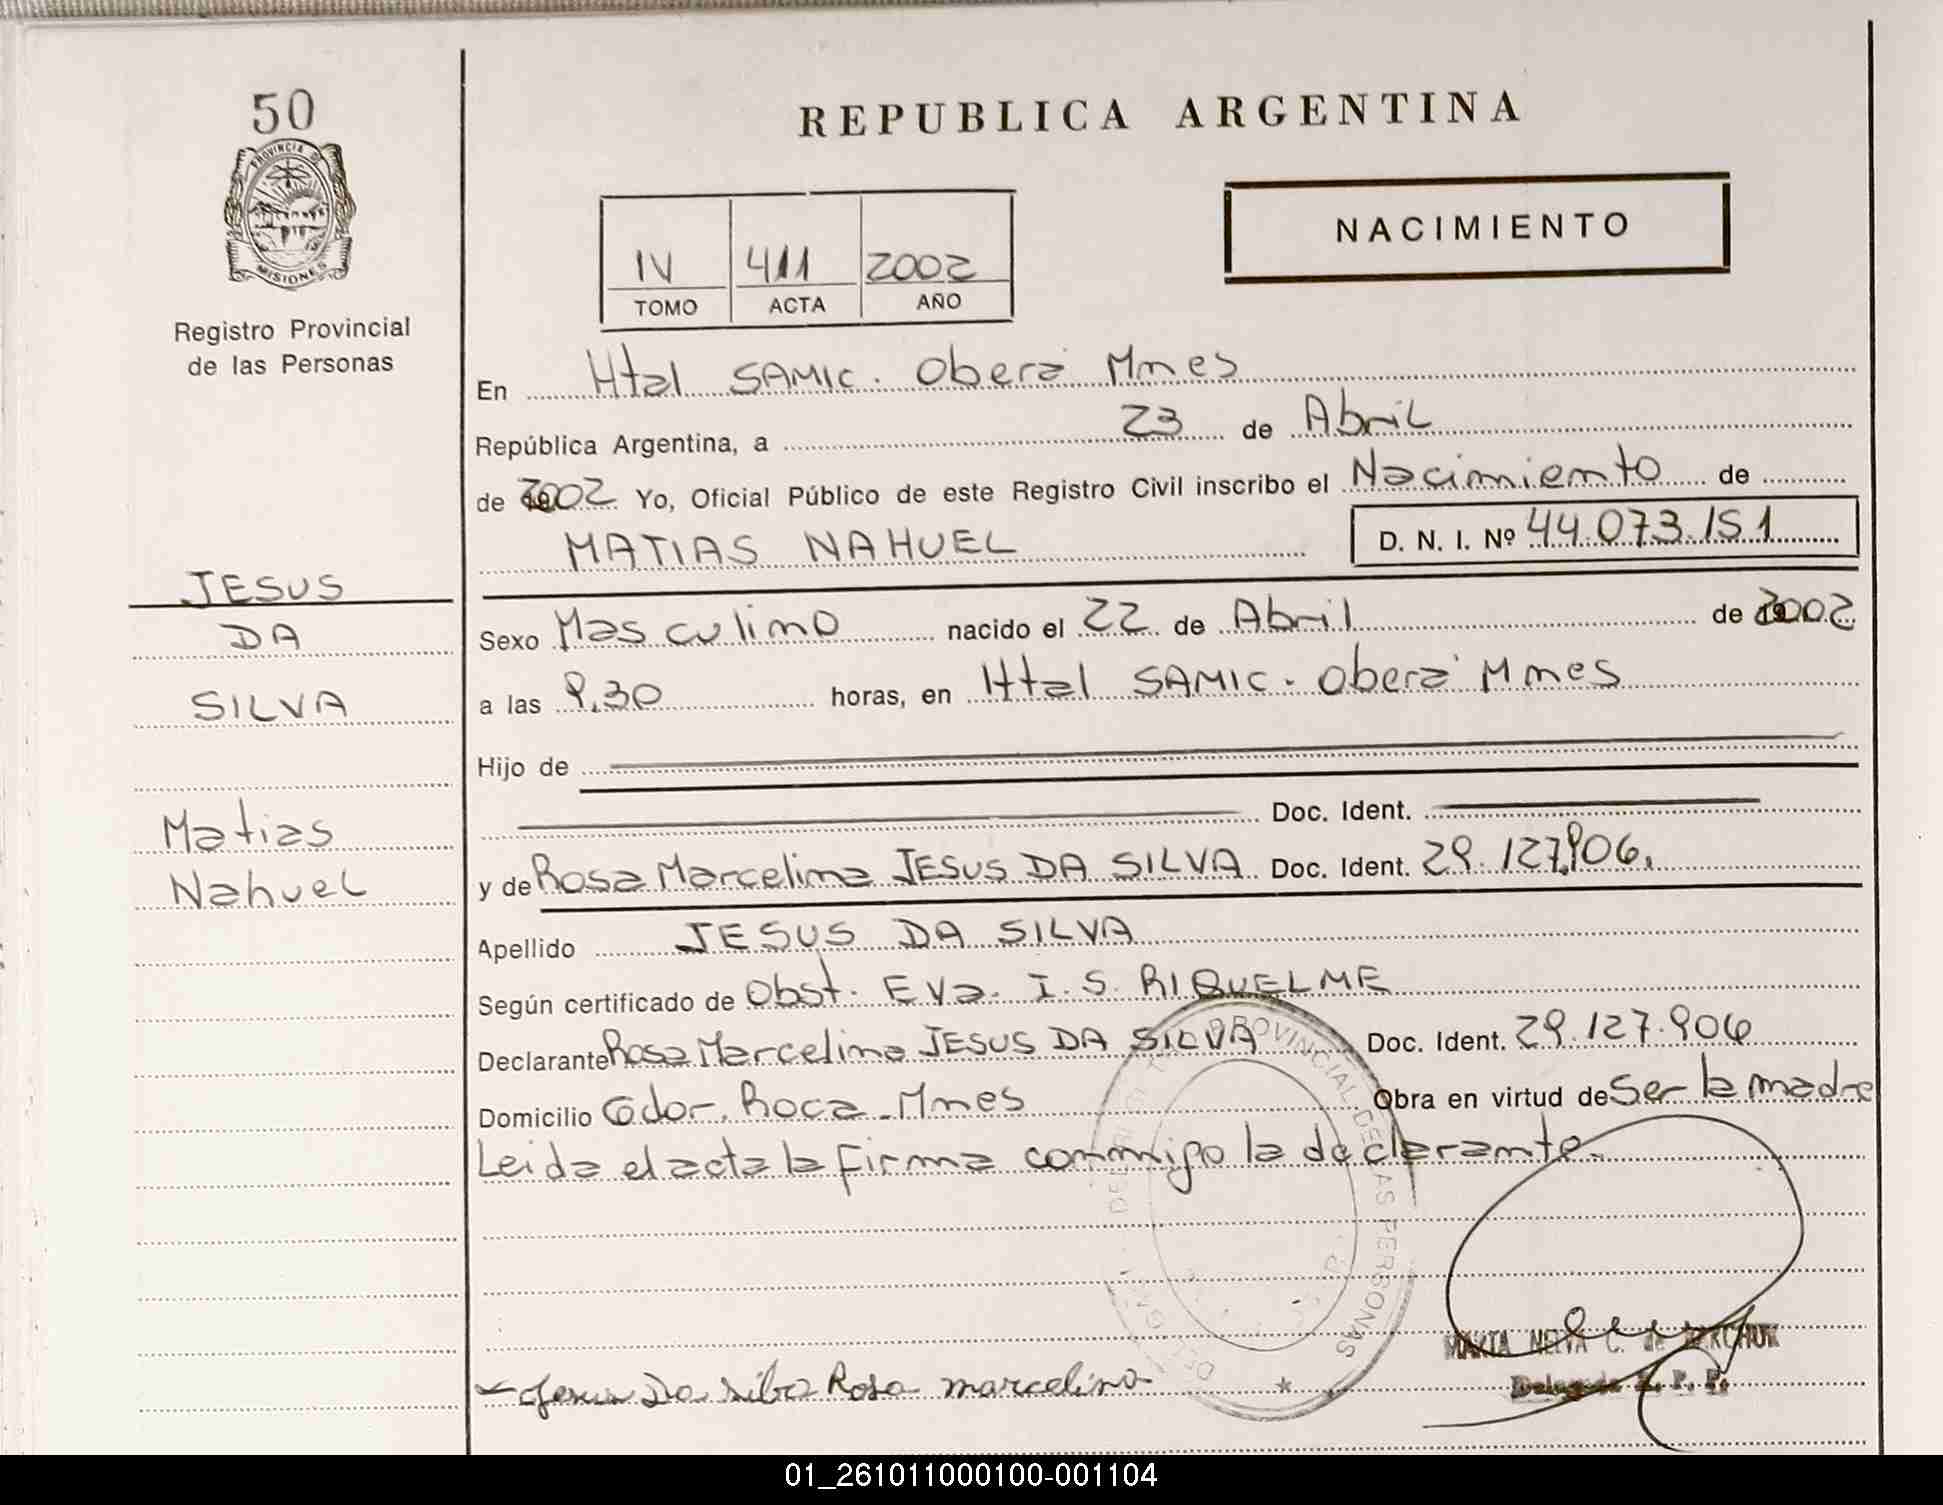 50
PROVINCIA DE
MISIONES
Registro Provincial
de las Personas
JESUS
DA
SILVA
Matias
Nahuel
REPUBLICA ARGENTINA
IV 411 2002
TOMO ACTA AÑO
NACIMIENTO
En Htal SAMIC. Oberá Mnes
República Argentina, a 23 de Abril
de 2002 Yo, Oficial Público de este Registro Civil inscribo el Nacimiento de
MATIAS NAHUEL D. N. I. Nº 44.073.151
Sexo Masculino nacido el 22 de Abril de 2002
a las 9.30 horas, en Htal SAMIC. Oberá Mnes
Hijo de
Doc. Ident.
y de Rosa Marcelina JESUS DA SILVA Doc. Ident. 29.127.906.
Apellido JESUS DA SILVA
Según certificado de Obst. Eva. I. S. RIQUELME
Declarante Rosa Marcelina JESUS DA SILVA Doc. Ident. 29.127.906
Domicilio Gdor. Roca - Mnes Obra en virtud de Ser la madre
Leida el acta la firma conmigo la declarante.
PROVINCIAL DE LAS PERSONAS
MARTA C. de
Jesus Da Silva Rosa marcelina
01_261011000100-001104